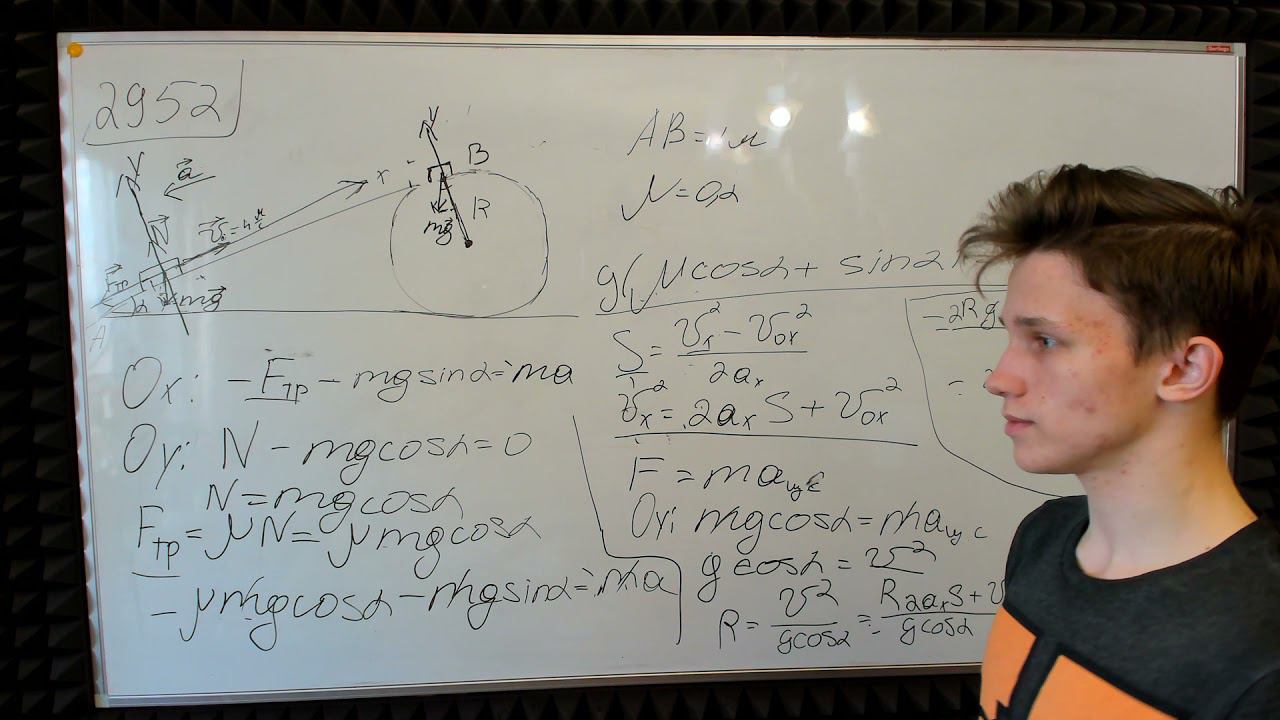 2952
y
a⃗
N⃗
v⃗₀ = 4 м/с
x
F⃗тр
α
mg⃗
A
y
B
R
mg⃗
AB = 1 м
μ = 0,2
Ox: -Fтр - mgsinα = ma
Oy: N - mgcosα = 0
N = mgcosα
Fтр = μN = μmgcosα
-μmgcosα - mgsinα = ma
g(μcosα + sinα)
S = (vₓ² - v₀ₓ²) / 2aₓ
vₓ² = 2aₓS + v₀ₓ²
F = maцс
Oy: mgcosα = maцс
gcosα = v²
R = v² / gcosα = R2aₓS + v / gcosα
-2Rg
=